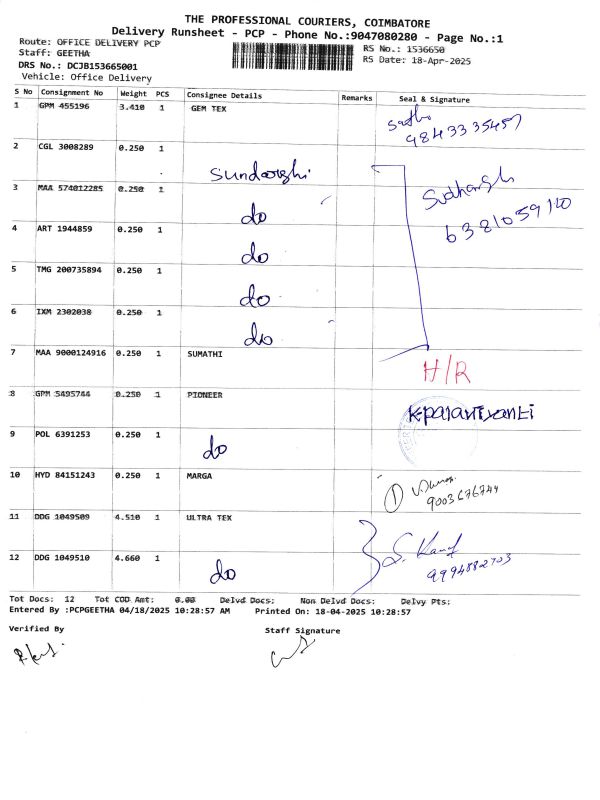 THE PROFESSIONAL COURIERS, COIMBATORE
Delivery Runsheet - PCP - Phone No.:9047080280 - Page No.:1
Route: OFFICE DELIVERY PCP
Staff: GEETHA
DRS No.: DCJB153665001
Vehicle: Office Delivery
RS No.: 1536650
RS Date: 18-Apr-2025
S No Consignment No Weight PCS Consignee Details Remarks Seal & Signature
1 GPM 455196 3.410 1 GEM TEX
9843335457
2 CGL 3008289 0.250 1
3 MAA 574012285 0.250 1 do
4 ART 1944859 0.250 1 do
5 TMG 200735894 0.250 1 do
6 IXM 2302038 0.250 1 do
7 MAA 9000124916 0.250 1 SUMATHI H/R
8 GPM 5495744 0.250 1 PIONEER
9 POL 6391253 0.250 1 do
10 HYD 84151243 0.250 1 MARGA
9003676744
11 DDG 1049509 4.510 1 ULTRA TEX
12 DDG 1049510 4.660 1 do
Tot Docs: 12 Tot COD Amt: 0.00 Delvd Docs: Non Delvd Docs: Delvy Pts:
Entered By :PCPGEETHA 04/18/2025 10:28:57 AM Printed On: 18-04-2025 10:28:57
Verified By Staff Signature